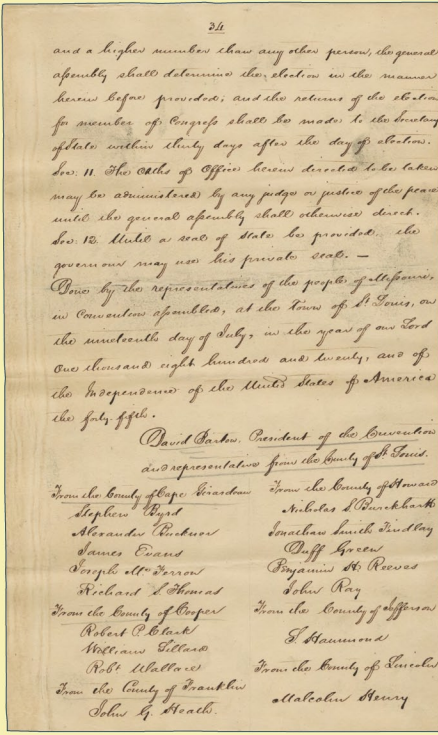 34
and a higher number than any other person, the general
assembly shall determine the election in the manner
herein before provided; and the returns of the election
for member of Congress shall be made to the Secretary
of State within thirty days after the day of election.
Sec. 11. The Oaths of Office herein directed to be taken
may be administered by any judge or justice of the peace
until the general assembly shall otherwise direct.
Sec. 12. Until a seal of State be provided, the
governour may use his private seal. —
Done by the representatives of the people of Missouri,
in Convention assembled, at the Town of St. Louis, on
the nineteenth day of July, in the year of our Lord
One thousand eight hundred and twenty, and of
the Independence of the United States of America
the forty fifth.
David Barton, President of the Convention
and representative from the County of St. Louis.
From the County of Cape Girardeau
Stephen Byrd
Alexander Buckner
James Evans
Joseph Mc. Ferron
Richard S. Thomas
From the County of Cooper
Robert P. Clark
William Lillard
Robt. Wallace
From the County of Franklin
John G. Heath.
From the County of Howard
Nicholas S. Burckhartt
Jonathan Smith Findlay
Duff Green
Benjamin H. Reeves
John Ray
From the County of Jefferson
S. Hammond
From the County of Lincoln
Malcolm Henry